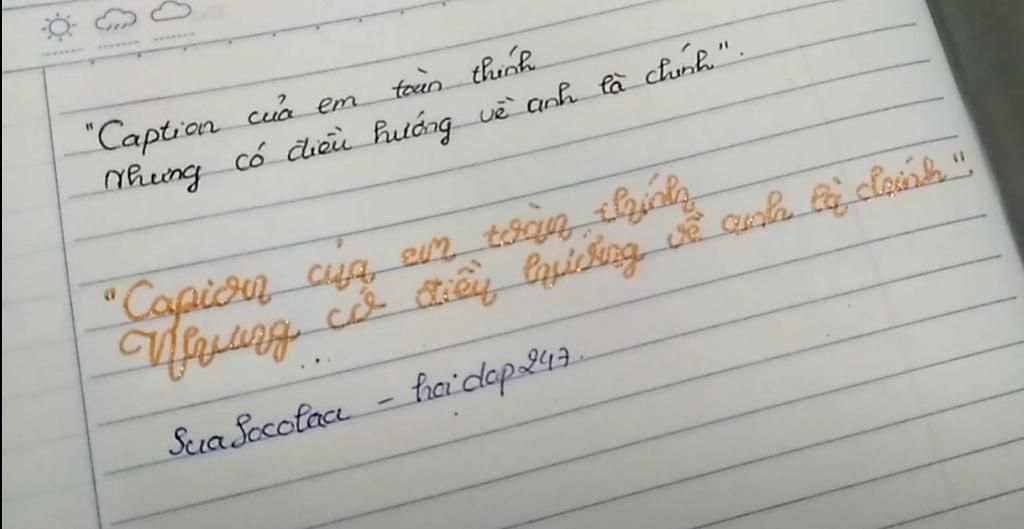 "Caption của em toàn thính
Nhưng có điều hướng về anh là chính".
"Capion của em toàn thính
Nhưng có điều hướng về anh là chính".
Suasocolaa - hoidap247.